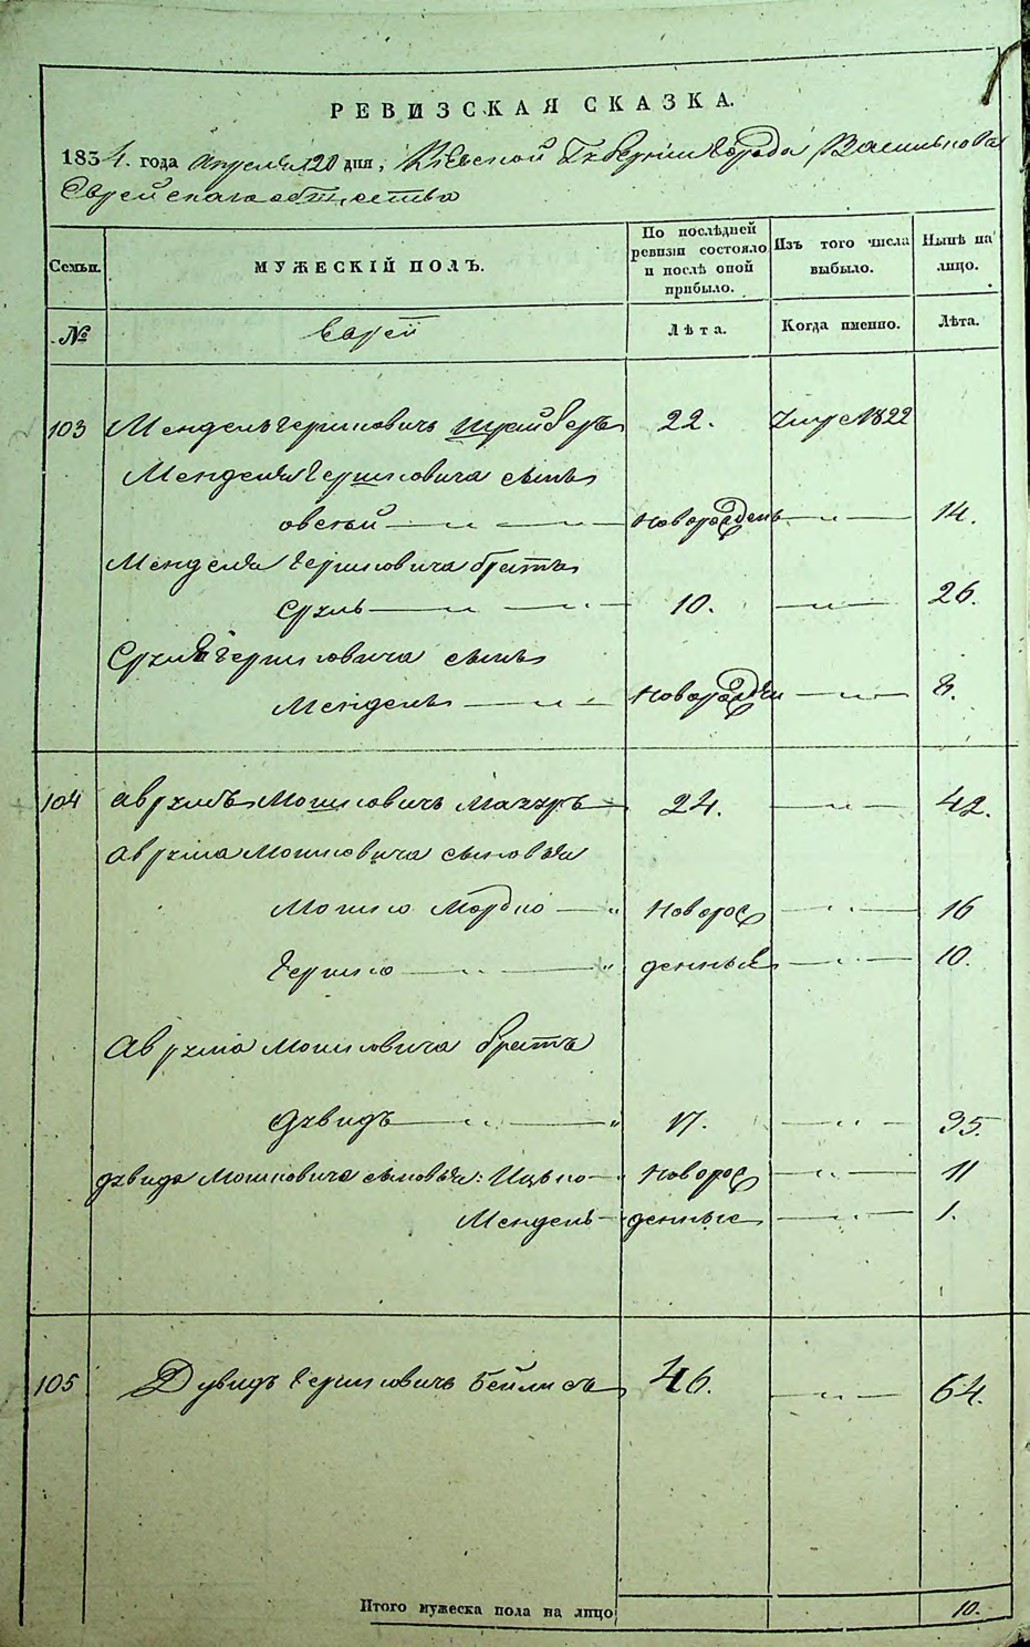 РЕВИЗСКАЯ СКАЗКА.
1834. года Апреля 20 дня, Киевской Губернии города Василькова
Еврейскаго общества
Семьи. МУЖЕСКІЙ ПОЛЪ. По послѣдней ревизіи состояло и послѣ оной прибыло. Изъ того числа выбыло. Нынѣ на лицо.
№ Еврей Лѣта. Когда именно. Лѣта.
103 Мендель Гершковичъ Шрейберъ 22. умре 1822
Менделя Гершковича сынъ
Овсей — „ — „ — Новорожденъ — „ — 14.
Менделя Гершковича братъ
Сруль — „ — „ — 10. — „ — 26.
Сруля Гершковича сынъ
Мендель — „ — „ Новорожден — „ — 8.
104 Аврумъ Мошковичъ Мазуръ — 24. — „ — 42.
Аврума Мошковича сыновья
Мошко Мордко — „ Новорож — „ — 16
Гершко — „ — „ денные — „ — 10.
Аврума Мошковича братъ
Дувидъ — „ — „ 17. — „ — 35.
Дувида Мошковича сыновья: Ицько — Новорож — „ — 11
Мендель — денные — „ — 1.
105 Дувидъ Гершковичъ Бейлисъ 46. — „ — 64.
Итого мужеска пола на лицо 10.